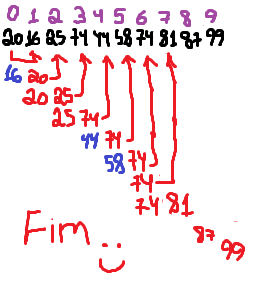 0 1 2 3 4 5 6 7 8 9
20 16 25 74 44 58 74 81 87 99
16 20
20 25
25 74
44 74
58 74
74
74 81
87
99
Fim